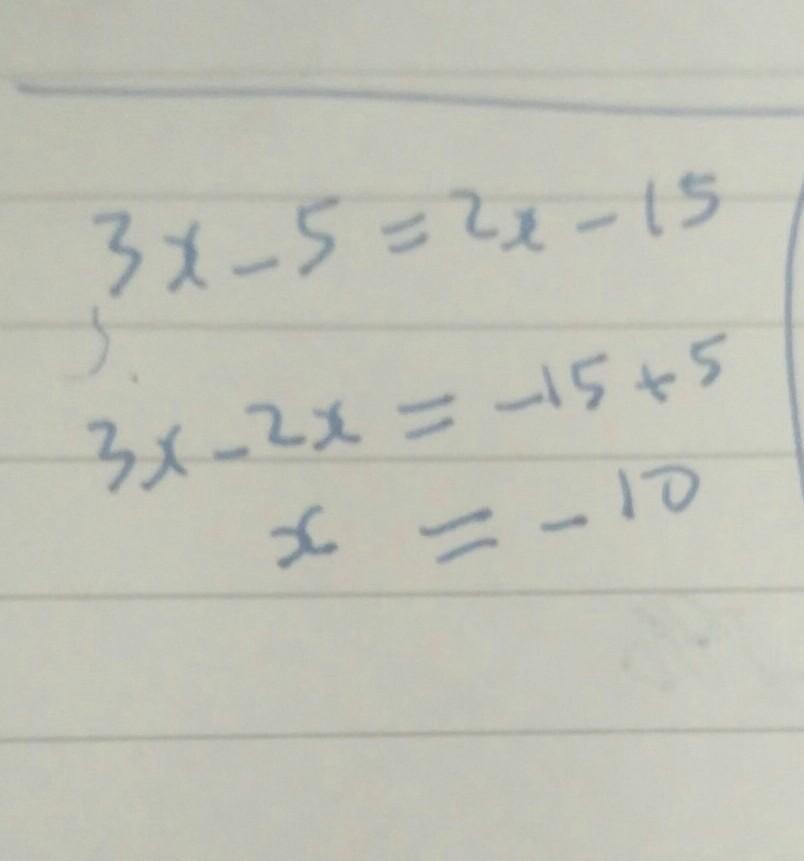 3x - 5 = 2x - 15
3x - 2x = -15 + 5
x = -10